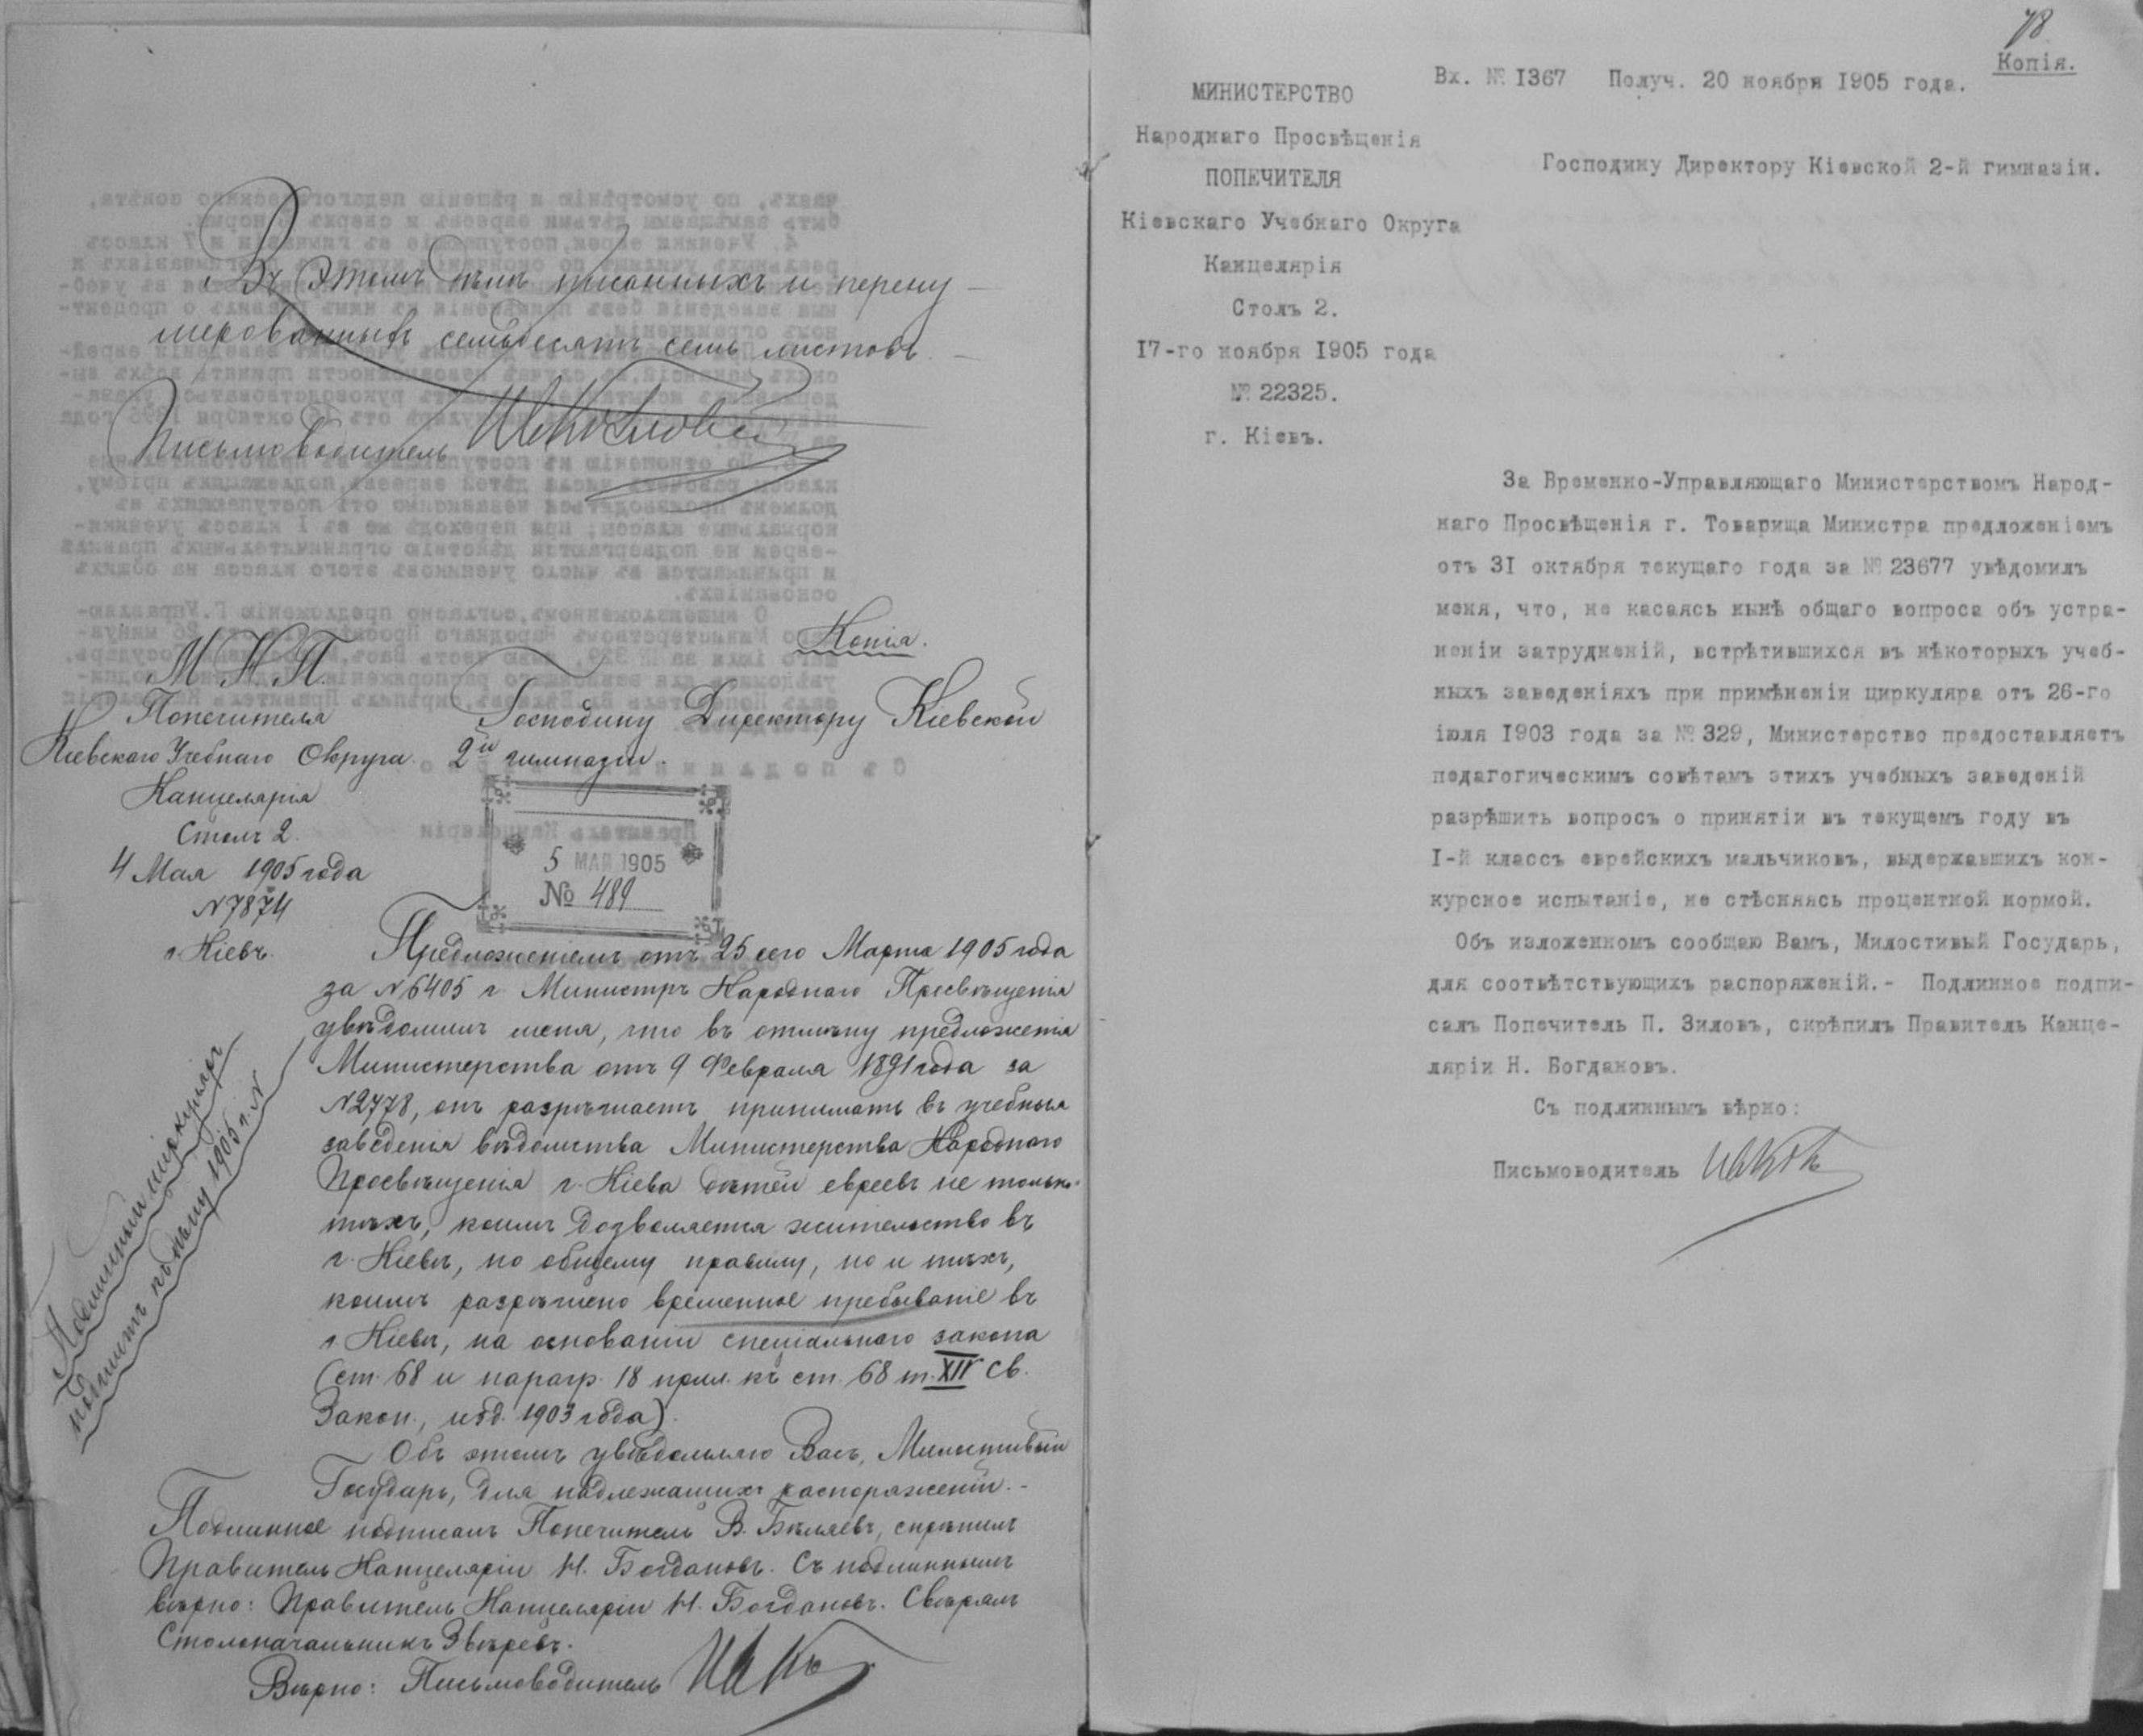 Въ этомъ дѣлѣ писанныхъ и перену-
мерованныхъ семьдесятъ семь листовъ.
Письмоводитель
Копія.
М. Н. П.
Попечителя
Кіевскаго Учебнаго Округа.
Канцелярія
Столъ 2.
4 Мая 1905 года
№ 7874
г. Кіевъ.
Господину Директору Кіевской
2й гимназіи.
5 МАЯ 1905
№ 489
Предложеніемъ отъ 25 сего Марта 1905 года
за № 6405 г. Министръ Народнаго Просвѣщенія
увѣдомилъ меня, что въ отмѣну предложенія
Министерства отъ 9 Февраля 1891 года за
№ 2778, онъ разрѣшаетъ принимать въ учебныя
заведенія вѣдомства Министерства Народнаго
Просвѣщенія г. Кіева дѣтей евреевъ не только
тѣхъ, коимъ дозволяется жительство въ
г. Кіевѣ, по общему правилу, но и тѣхъ,
коимъ разрѣшено временное пребываніе въ
г. Кіевѣ, на основаніи спеціальнаго закона
(ст. 68 и парагр. 18 прил. къ ст. 68 т. XIV Св.
Закон., изд. 1903 года).
Объ этомъ увѣдомляю Васъ, Милостивый
Государь, для надлежащихъ распоряженій.-
Подлинное подписалъ Попечитель В. Бѣляевъ, скрѣпилъ
Правитель Канцеляріи Н. Богдановъ. Съ подлиннымъ
вѣрно: Правитель Канцеляріи Н. Богдановъ. Свѣрялъ
Столоначальникъ Звѣревъ.
Вѣрно: Письмоводитель
Подлинный циркуляръ
подшитъ къ дѣлу 1905 г. №
78
Копія.
Вх. № 1367 Получ. 20 ноября 1905 года.
МИНИСТЕРСТВО
Народнаго Просвѣщенія
ПОПЕЧИТЕЛЯ
Кіевскаго Учебнаго Округа
Канцелярія
Столъ 2.
17-го ноября 1905 года
№ 22325.
г. Кіевъ.
Господину Директору Кіевской 2-й гимназіи.
За Временно-Управляющаго Министерствомъ Народ-
наго Просвѣщенія г. Товарища Министра предложеніемъ
отъ 31 октября текущаго года за № 23677 увѣдомилъ
меня, что, не касаясь нынѣ общаго вопроса объ устра-
неніи затрудненій, встрѣтившихся въ нѣкоторыхъ учеб-
ныхъ заведеніяхъ при примѣненіи циркуляра отъ 26-го
іюля 1903 года за № 329, Министерство предоставляетъ
педагогическимъ совѣтамъ этихъ учебныхъ заведеній
разрѣшить вопросъ о принятіи въ текущемъ году въ
I-й классъ еврейскихъ мальчиковъ, выдержавшихъ кон-
курсное испытаніе, не стѣсняясь процентной нормой.
Объ изложенномъ сообщаю Вамъ, Милостивый Государь,
для соотвѣтствующихъ распоряженій.- Подлинное подпи-
салъ Попечитель П. Зиловъ, скрѣпилъ Правитель Канце-
ляріи Н. Богдановъ.
Съ подлиннымъ вѣрно:
Письмоводитель